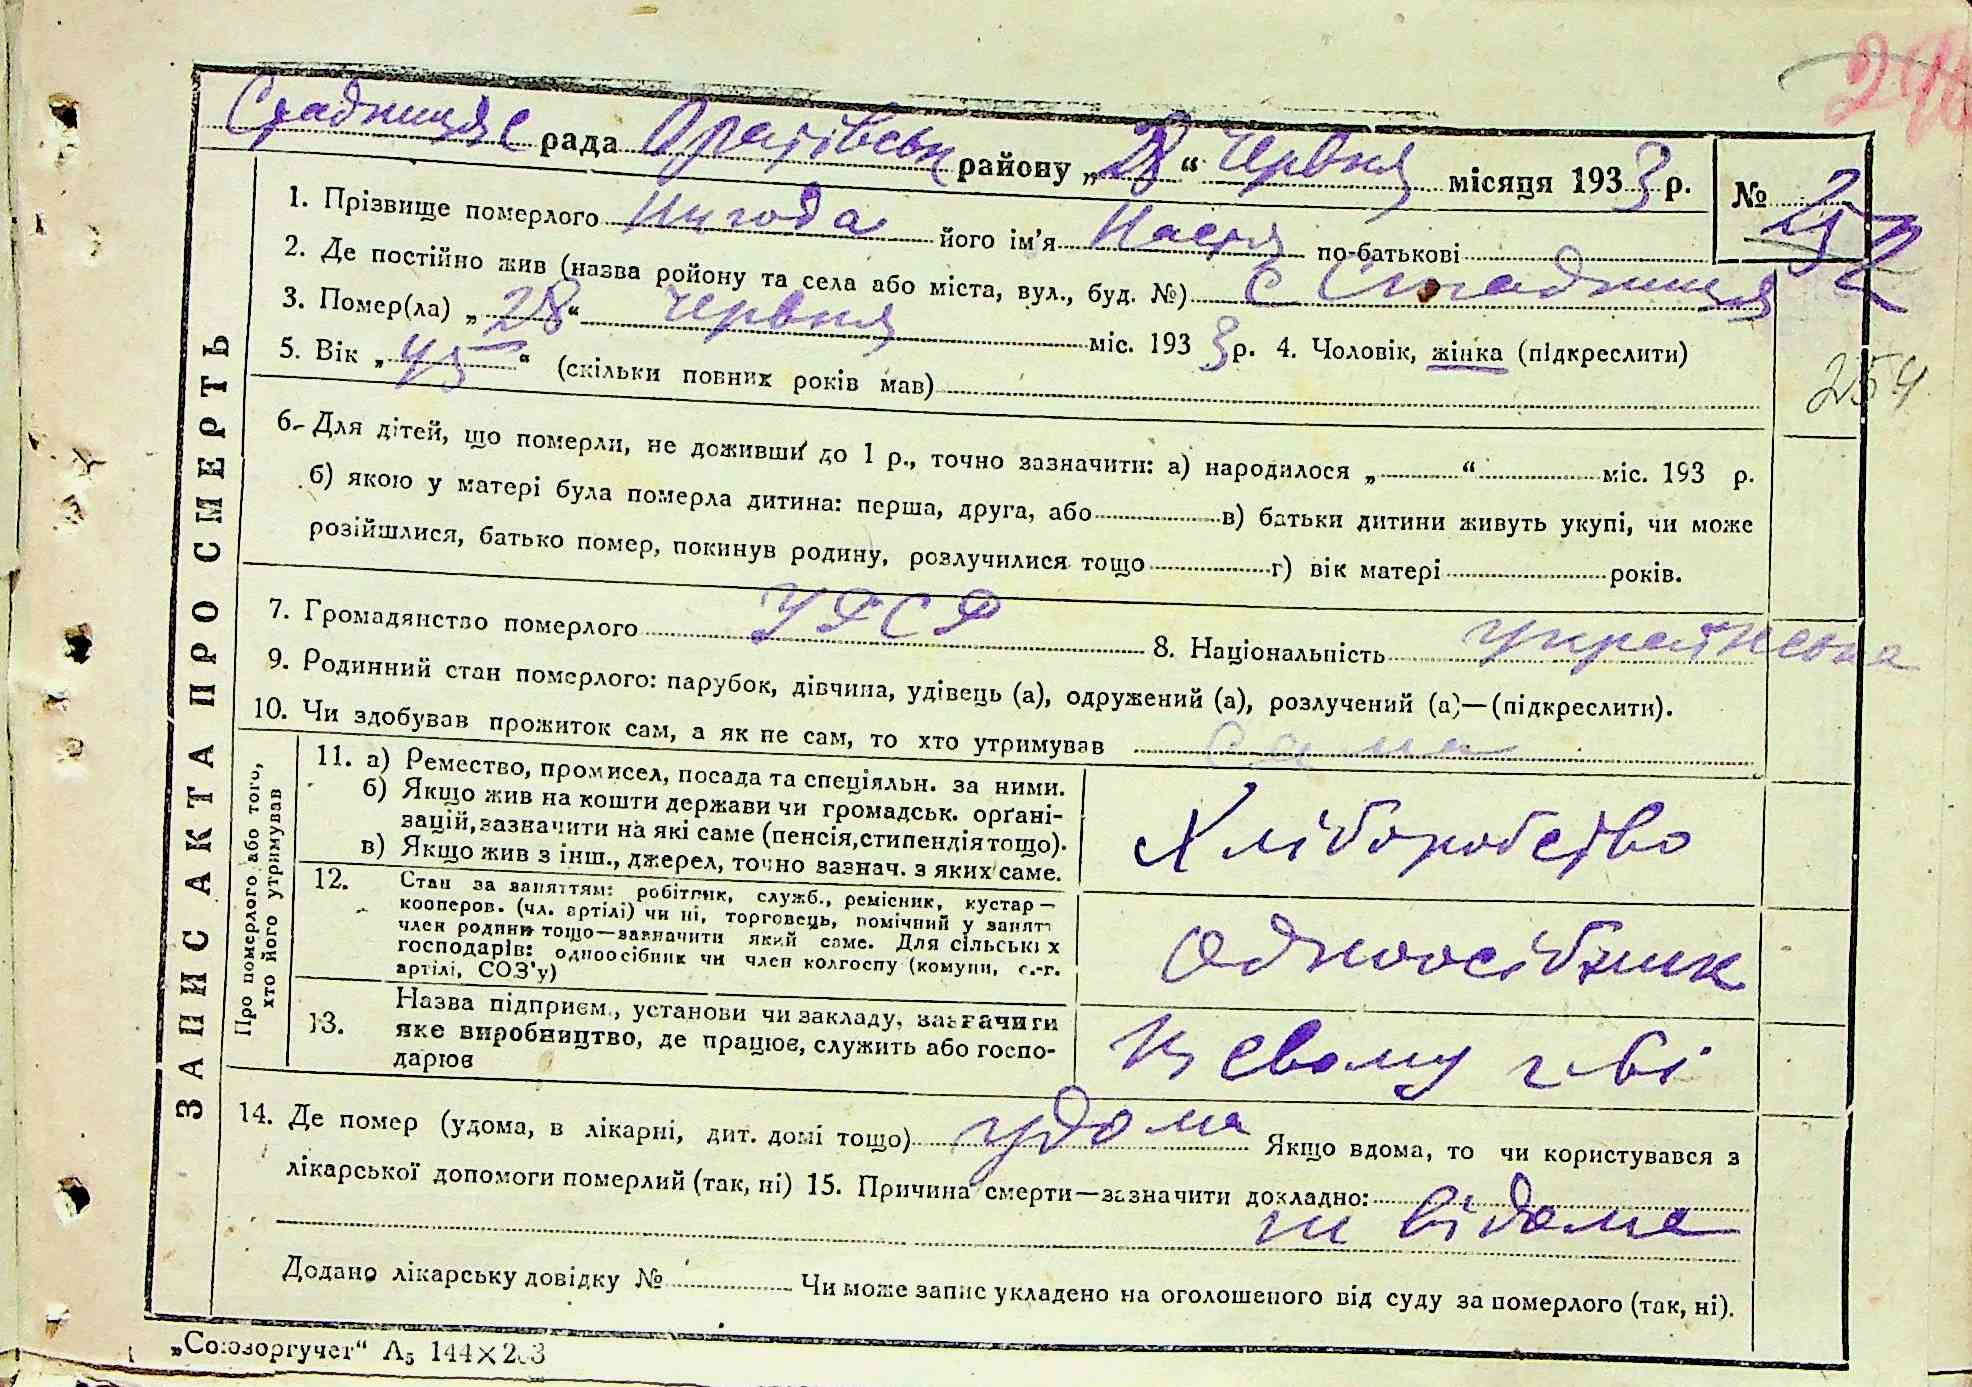 Стадницяс рада Оратівськ району „28“ Червня місяця 1933 р. № 252
1. Прізвище померлого Нигода його ім’я Настя по-батькові
2. Де постійно жив (назва ройону та села або міста, вул., буд. №) с Стадниця
3. Помер(ла) „28“ червня міс. 1933 р. 4. Чоловік, жінка (підкреслити)
254
5. Вік „45“ (скільки повних років мав)
6. Для дітей, що померли, не доживши до 1 р., точно зазначити: а) народилося „ “ міс. 193 р.
б) якою у матері була померла дитина: перша, друга, або в) батьки дитини живуть укупі, чи може
розійшлися, батько помер, покинув родину, розлучилися тощо г) вік матері років.
7. Громадянство померлого УРСР 8. Національність українська
9. Родинний стан померлого: парубок, дівчина, удівець (а), одружений (а), розлучений (а)—(підкреслити).
10. Чи здобував прожиток сам, а як не сам, то хто утримував сама
ЗАПИС АКТА ПРО СМЕРТЬ
Про померлого або того,
хто його утримував
11. а) Ремество, промисел, посада та спеціяльн. за ними.
б) Якщо жив на кошти держави чи громадськ. орґані-
зацій, зазначити на які саме (пенсія, стипендія тощо).
в) Якщо жив з інш., джерел, точно зазнач. з яких саме.
Хліборобство
12. Стан за заняттям: робітник, служб., ремісник, кустар—
кооперов. (чл. артілі) чи ні, торговець, помічний у занятт
член родини тощо—зазначити який саме. Для сільських
господарів: одноосібник чи член колгоспу (комуни, с.-г.
артілі, СОЗ’у)
Одноосібник
13. Назва підприєм., установи чи закладу, зазначити
яке виробництво, де працює, служить або госпо-
дарює
свому г-ві
14. Де помер (удома, в лікарні, дит. домі тощо) удома Якщо вдома, то чи користувався з
лікарської допомоги померлий (так, ні) 15. Причина смерти—зазначити докладно:
ни відома
Додано лікарську довідку № Чи може запис укладено на оголошеного від суду за померлого (так, ні).
„Союзоргучет“ А5 144×203